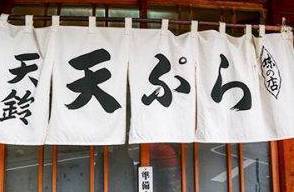 天鈴
天ぷら
味の店
準備